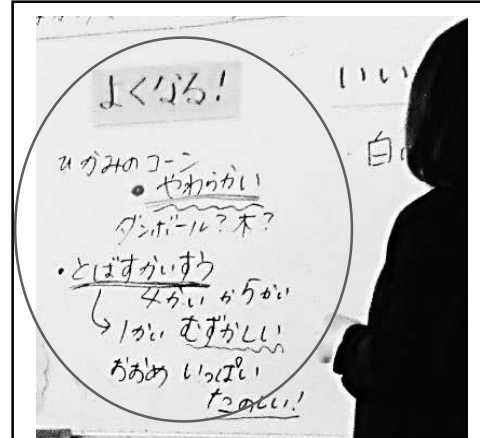 よくなる!
いい
白
ひがみのコーン
・やわらかい
ダンボール?木?
・とばすかいすう
4かいか5かい
↳1かい むずかしい
おおめ いっぱい
たのしい!